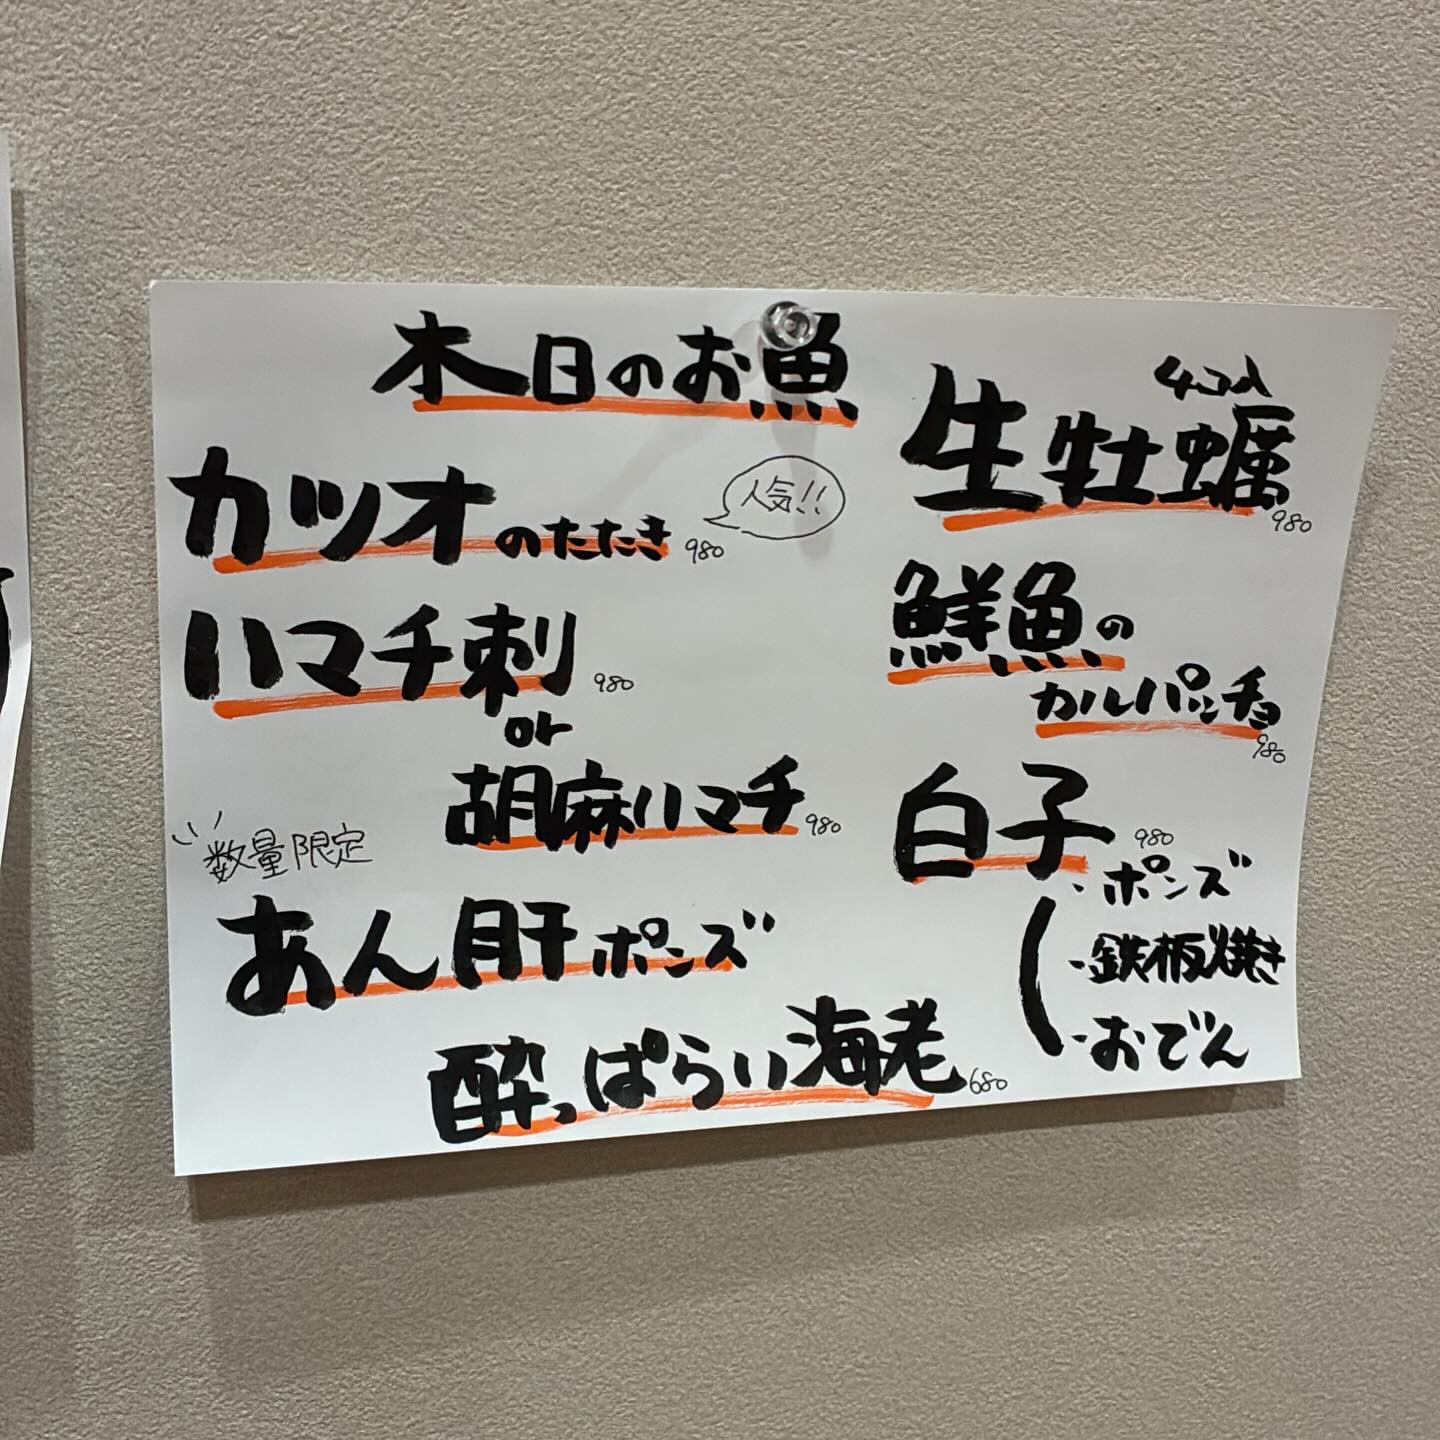 本日のお魚
カツオのたたき 980
人気!!
ハマチ刺 980
or
胡麻ハマチ 980
数量限定
あん肝ポンズ
酔っぱらい海老 680
生牡蠣 980
鮮魚の
カルパッチョ
980
白子 980
・ポンズ
・鉄板焼き
・おでん